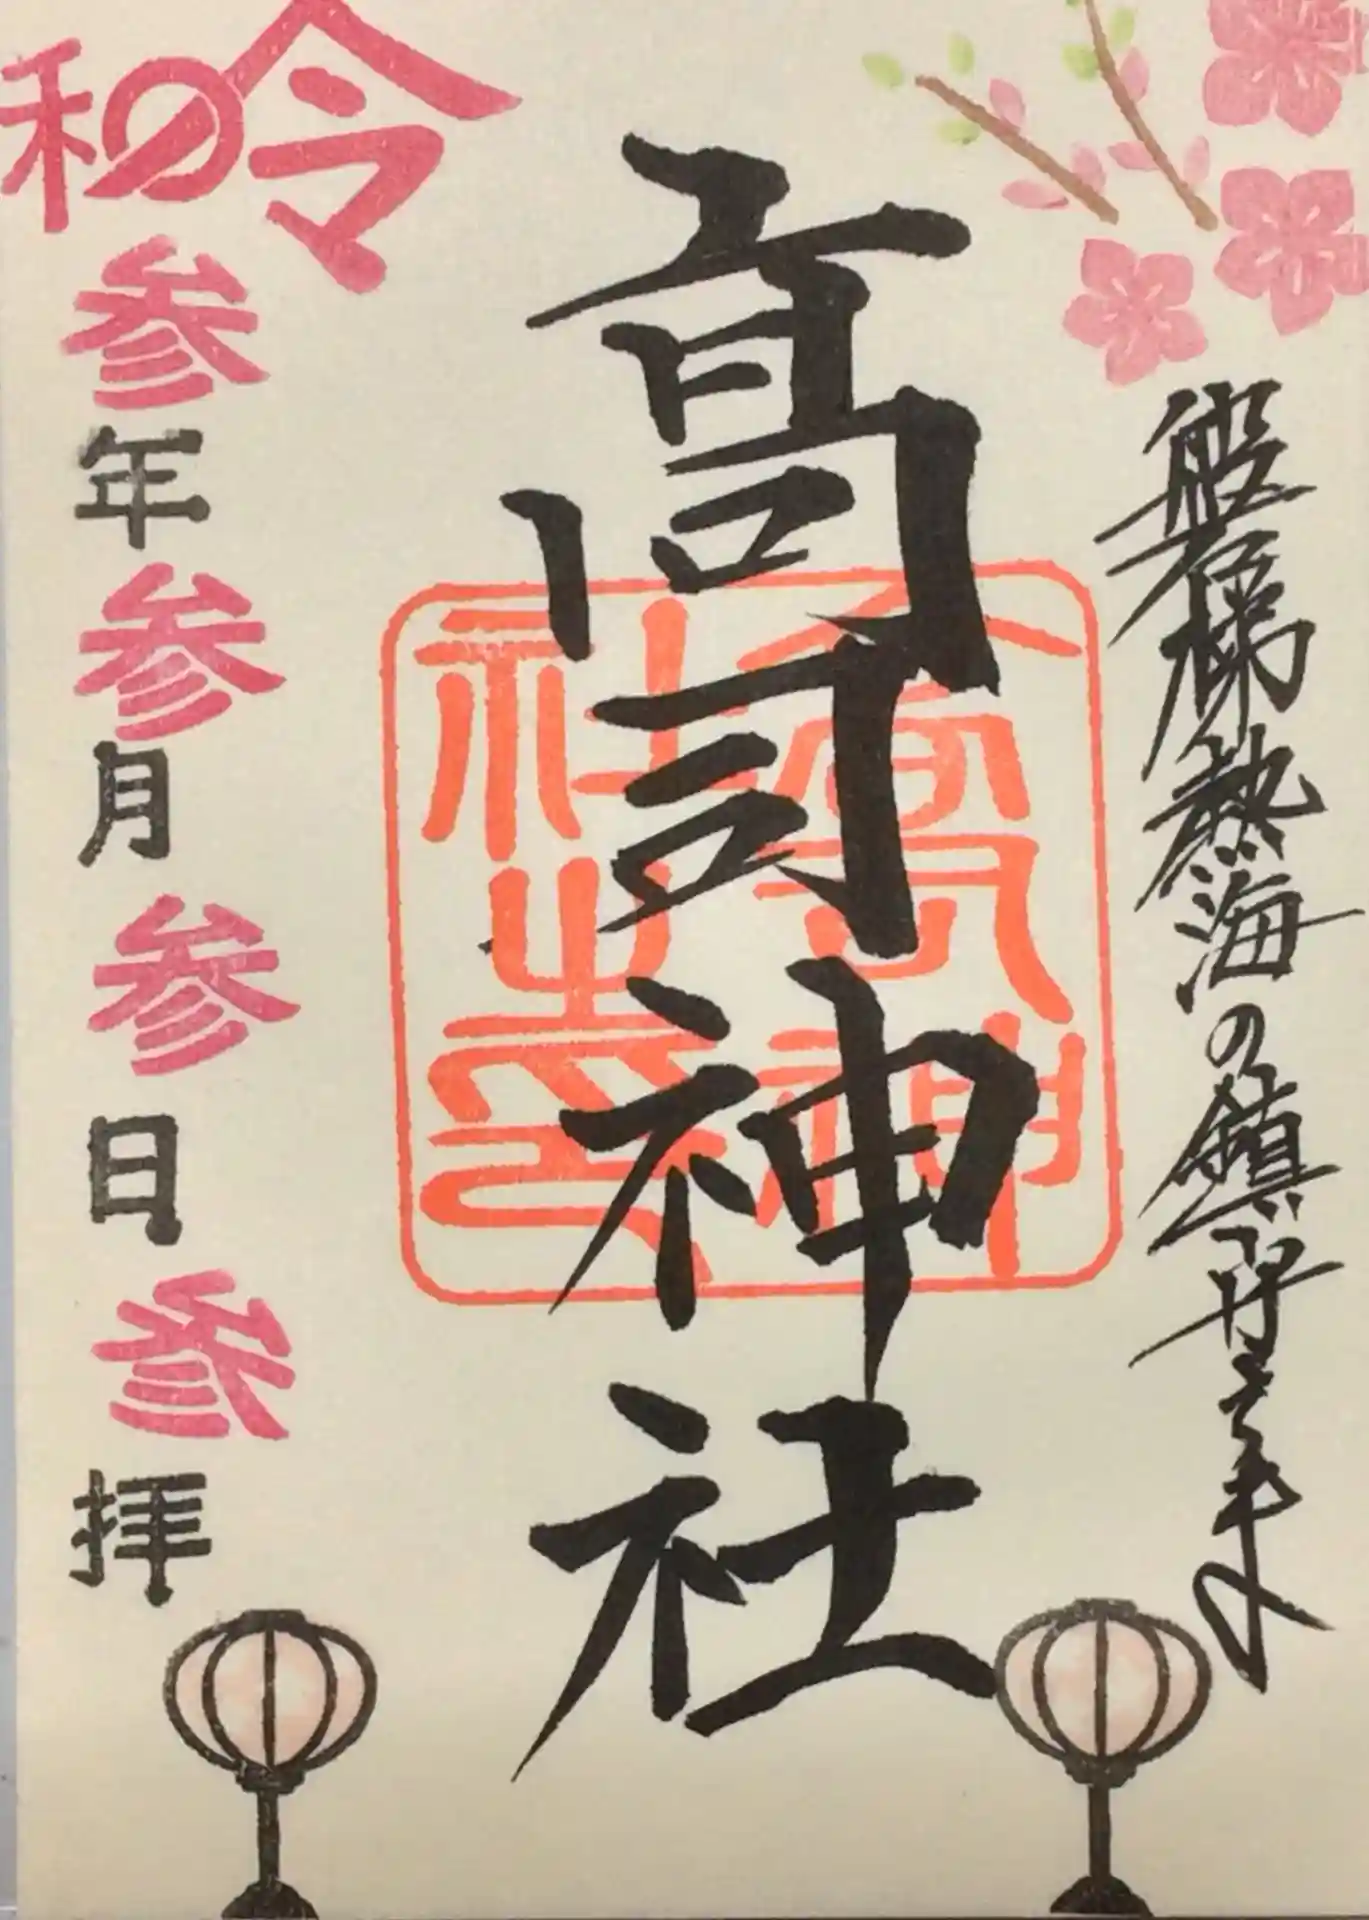 磐梯熱海の鎮守さま
高司神社
高司神
社之印
令和
参年参月参日参拝